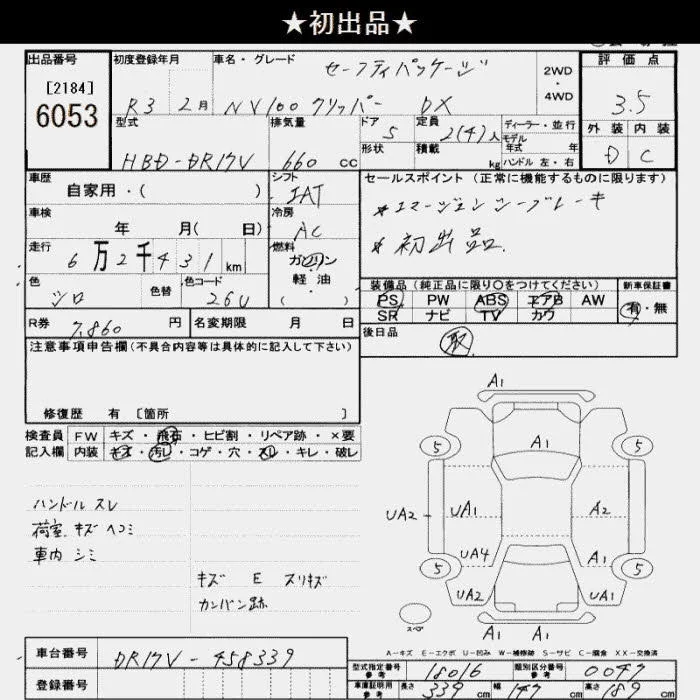 ★初出品★
出品番号
[2184]
6053
初度登録年月
R3 2月
車名・グレード
セーフティパッケージ
NV100クリッパー DX
2WD
・
4WD
評価点
3.5
外装 内装
D C
型式
HBD-DR17V
排気量
660 cc
ドア
5
形状
定員
2(4)人
積載
kg
ディーラー・並行
モデル
年式 年
ハンドル 左・右
車歴
自家用・( )
シフト
IAT
車検
年 月( 日)
冷房
AC
走行
6万2千431km
燃料
ガソリン
・
軽油
・
( )
色
シロ
色替
色コード
26U
セールスポイント(正常に機能するものに限ります)
*エマージェンシーブレーキ
*初出品.
装備品(純正品に限り○をつけてください)
新車保証書
PS PW ABS エアB AW
SR ナビ TV カワ
有・無
R券
7,860円
名変期限 月 日
後日品
取
注意事項申告欄(不具合内容等は具体的に記入して下さい)
修復歴 有 [箇所 ]
検査員
記入欄
FW キズ・飛石・ヒビ割・リペア跡・×要
内装 キズ・汚レ・コゲ・穴・スレ・キレ・破レ
ハンドルスレ
荷室 キズ ヘコミ
車内 シミ
キズ E スリキズ
カンバン跡
A1
5
A1
5
UA2
UA1
A2
A1
UA4
A1
5
5
UA2
UA1
スペア
A1 A1
A-キズ E-エクボ U-凹み W-補修跡 S-サビ C-腐食 XX-交換済
車台番号
DR17V-458339
登録番号
型式指定番号
参考
18016
類別区分番号
参考
0047
車庫証明用
参考
長さ 339cm
幅 147cm
高さ 189cm